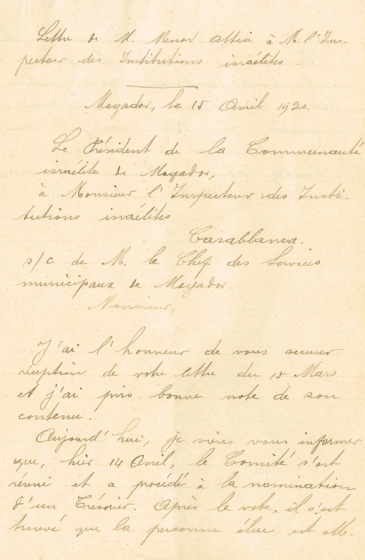 Lettre de M. Menor Attia à M. l'Ins-
pecteur des Institutions israélites
Mogador, le 15 Avril 1920.
Le Président de la Communauté
israélite de Mogador,
à Monsieur l'Inspecteur des Insti-
tutions israélites
Casablanca.
s/c de M. le Chef des Services
municipaux de Mogador.
Monsieur,
J'ai l'honneur de vous accuser
réception de votre lettre du 15 Mars
et j'ai pris bonne note de son
contenu.
Aujourd'hui, je viens vous informer
que, hier 14 Avril, le Comité s'est
réuni et a procédé à la nomination
d'un Trésorier. Après le vote, il s'est
trouvé que la personne élue est M.